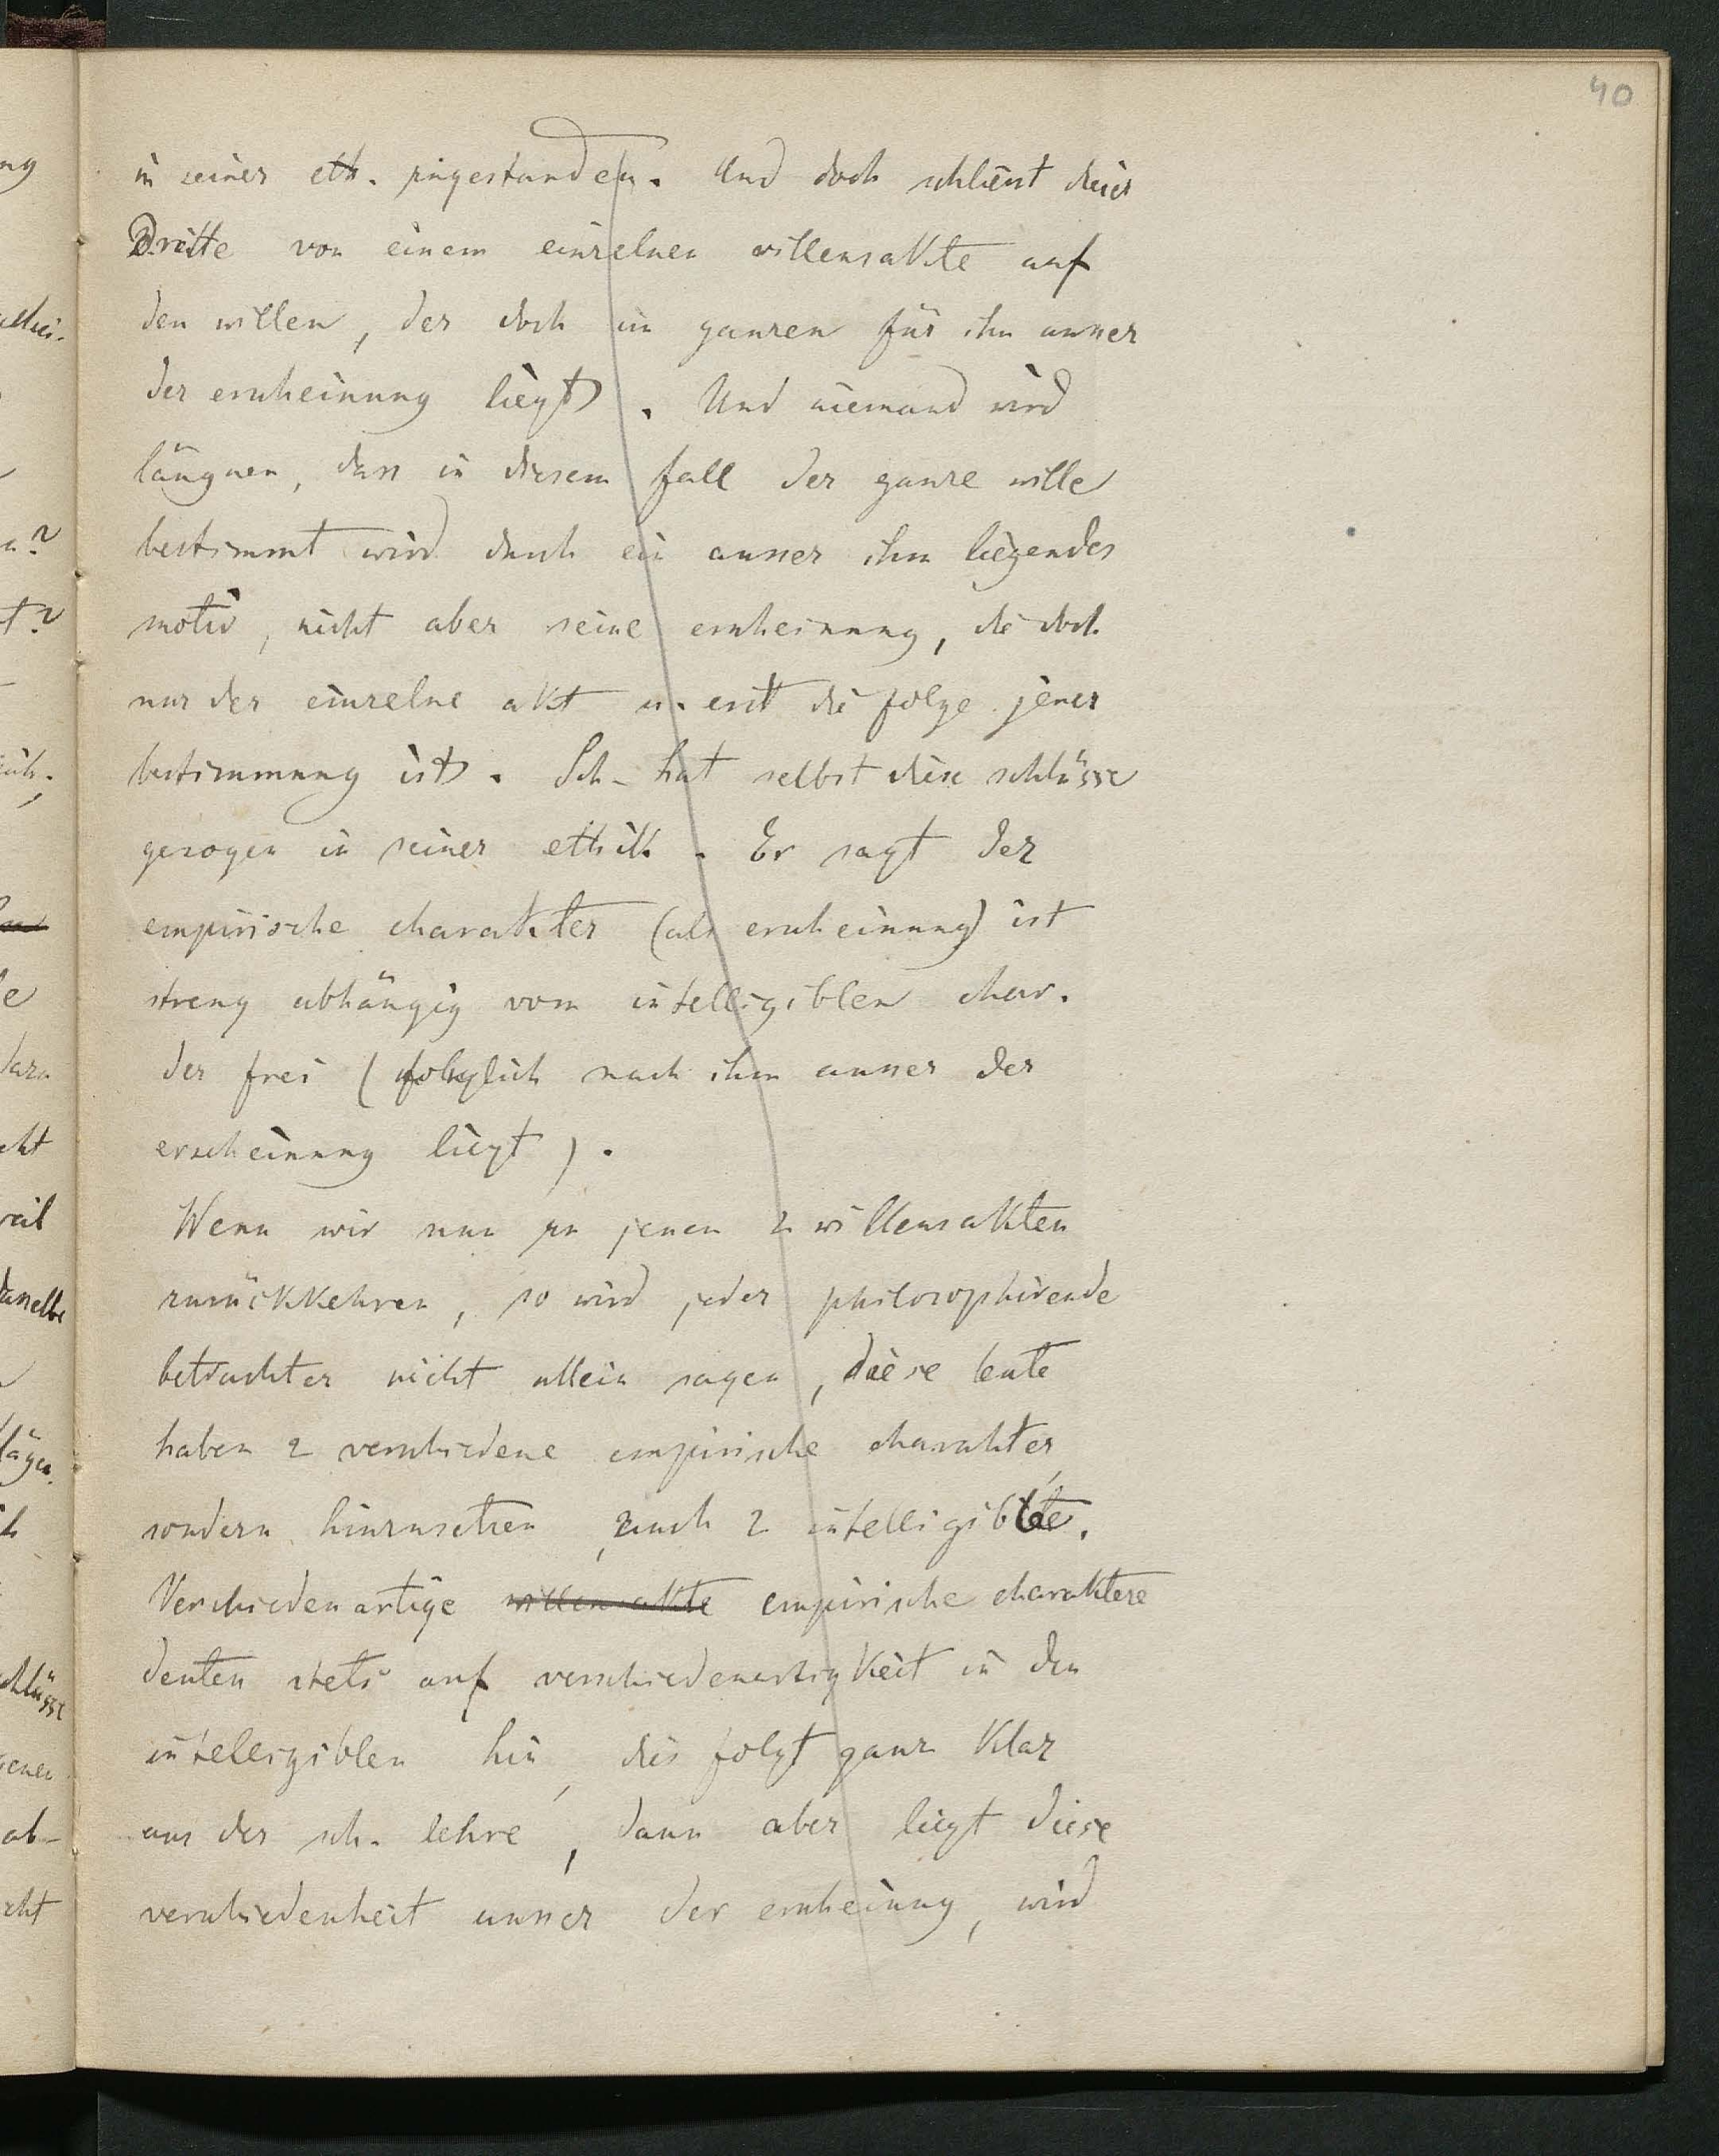 40
in seiner eth. zugestanden. Und doch schliesst dieser
Dritte von einem einzelnen willensakte auf
den willen, der doch im ganzen für ihn ausser
der erscheinung liegt. Und niemand wird
läugnen, dass in diesem fall der ganze wille
bestimmt wird durch ein ausser ihm liegendes
motiv, nicht aber seine erscheinung, die doch
nur der einzelne akt u. erst die folge jener
bestimmung ist. Sch- hat selbst diese schlüsse
gezogen in seiner ethik. Er sagt der
empirische charakter (als erscheinung) ist
streng abhängig vom intelligiblen char.
der frei (folglich nach ihm ausser der
erscheinung liegt).
Wenn wir nun zu jenen 2 willensakten
zurückkehren, so wird jeder philosophirende
betrachter nicht allein sagen, diese leute
haben 2 verschiedene empirische charakter,
sondern hinzusetzen, auch 2 intelligible.
Verschiedenartige willensakte empirische charaktere
deuten stets auf verschiedenartigkeit in den
intelligiblen hin, dies folgt ganz klar
aus der sch. lehre, dann aber liegt diese
verschiedenheit ausser der erscheinung, wird